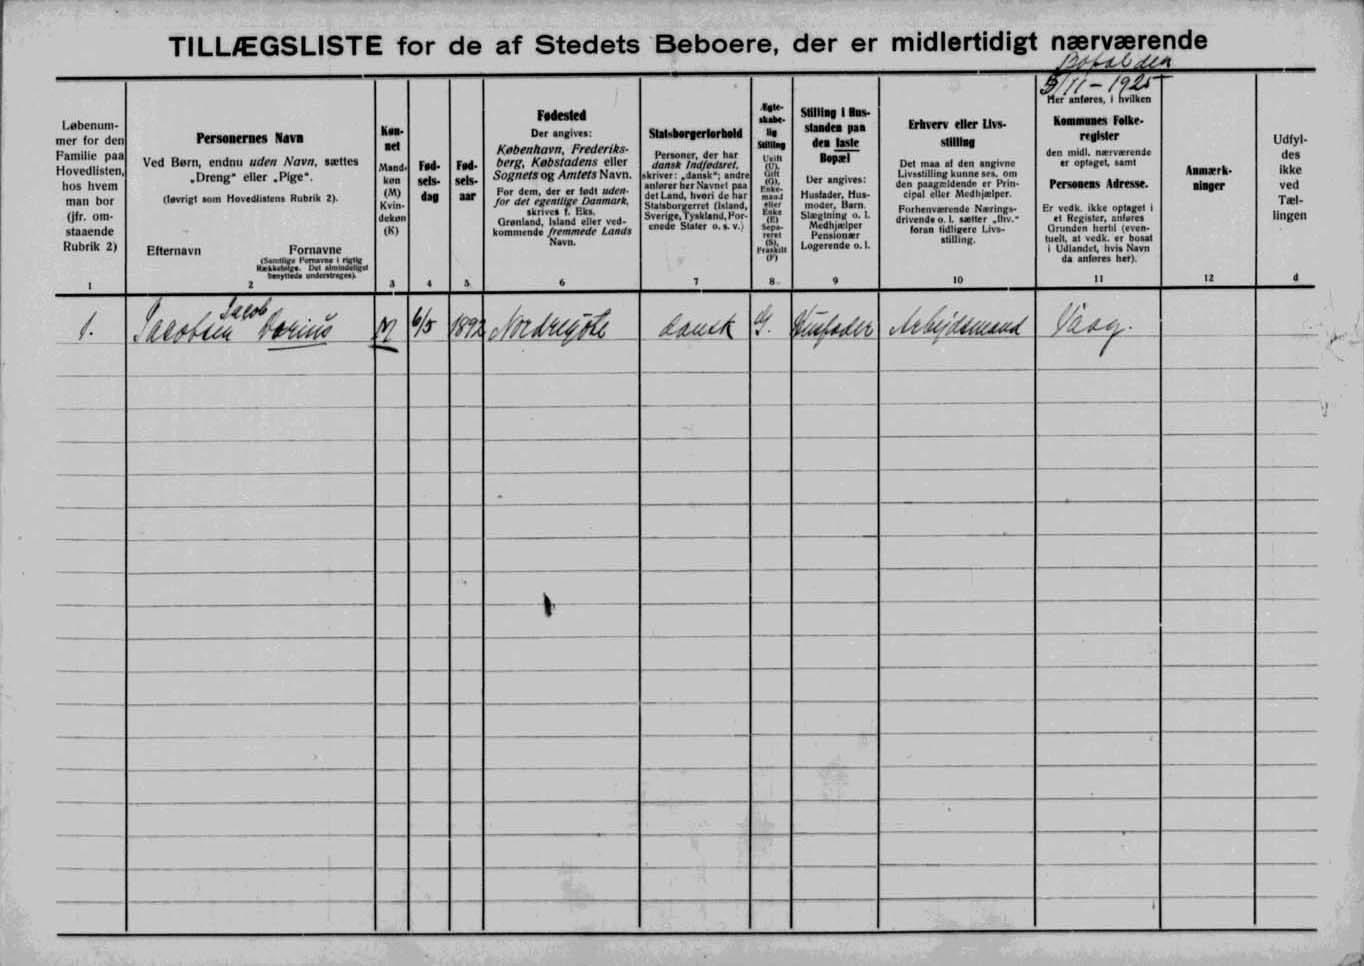 TILLÆGSLISTE for de af Stedets Beboere, der er midlertidigt nærværende
Bopæl den
5/11-1925
Løbenum-
mer for den
Familie paa
Hovedlisten,
hos hvem
man bor
(jfr. om-
staaende
Rubrik 2)
1
Personernes Navn
Ved Børn, endnu uden Navn, sættes
„Dreng“ eller „Pige“.
(Iøvrigt som Hovedlistens Rubrik 2).
Efternavn Fornavne
(Samtlige Fornavne i rigtig
Rækkefølge. Det almindeligst
benyttede understreges).
2
Køn-
net
Mand-
køn
(M)
Kvin-
dekøn
(K)
3
Fød-
sels-
dag
4
Fød-
sels-
aar
5
Fødested
Der angives:
København, Frederiks-
berg, Købstadens eller
Sognets og Amtets Navn.
For dem, der er født uden-
for det egentlige Danmark,
skrives f. Eks.
Grønland, Island eller ved-
kommende fremmede Lands
Navn.
6
Statsborgerforhold
Personer, der har
dansk Indfødsret,
skriver: „dansk“; andre
anfører her Navnet paa
det Land, hvori de har
Statsborgerret (Island,
Sverige, Tyskland, For-
enede Stater o. s. v.)
7
Ægte-
skabe-
lig
Stilling
Ugift
(U),
Gift
(G),
Enke-
mand
eller
Enke
(E)
Sepa-
reret
(S),
Fraskilt
(F)
8
Stilling i Hus-
standen paa
den faste
Bopæl
Der angives:
Husfader, Hus-
moder, Barn,
Slægtning o. l.
Medhjælper
Pensionær
Logerende o. l.
9
Erhverv eller Livs-
stilling
Det maa af den angivne
Livsstilling kunne ses, om
den paagældende er Prin-
cipal eller Medhjælper.
Forhenværende Nærings-
drivende o. l. sætter „fhv.“
foran tidligere Livs-
stilling.
10
Her anføres, i hvilken
Kommunes Folke-
register
den midl. nærværende
er optaget, samt
Personens Adresse.
Er vedk. ikke optaget i
et Register, anføres
Grunden hertil (even-
tuelt, at vedk. er bosat
i Udlandet, hvis Navn
da anføres her).
11
Anmærk-
ninger
12
Udfyl-
des
ikke
ved
Tæl-
lingen
d
Jacob
1. Jacobsen Dorius M 6/5 1892 Nordregöte dansk G. Husfader Arbejdsmand Vaag.